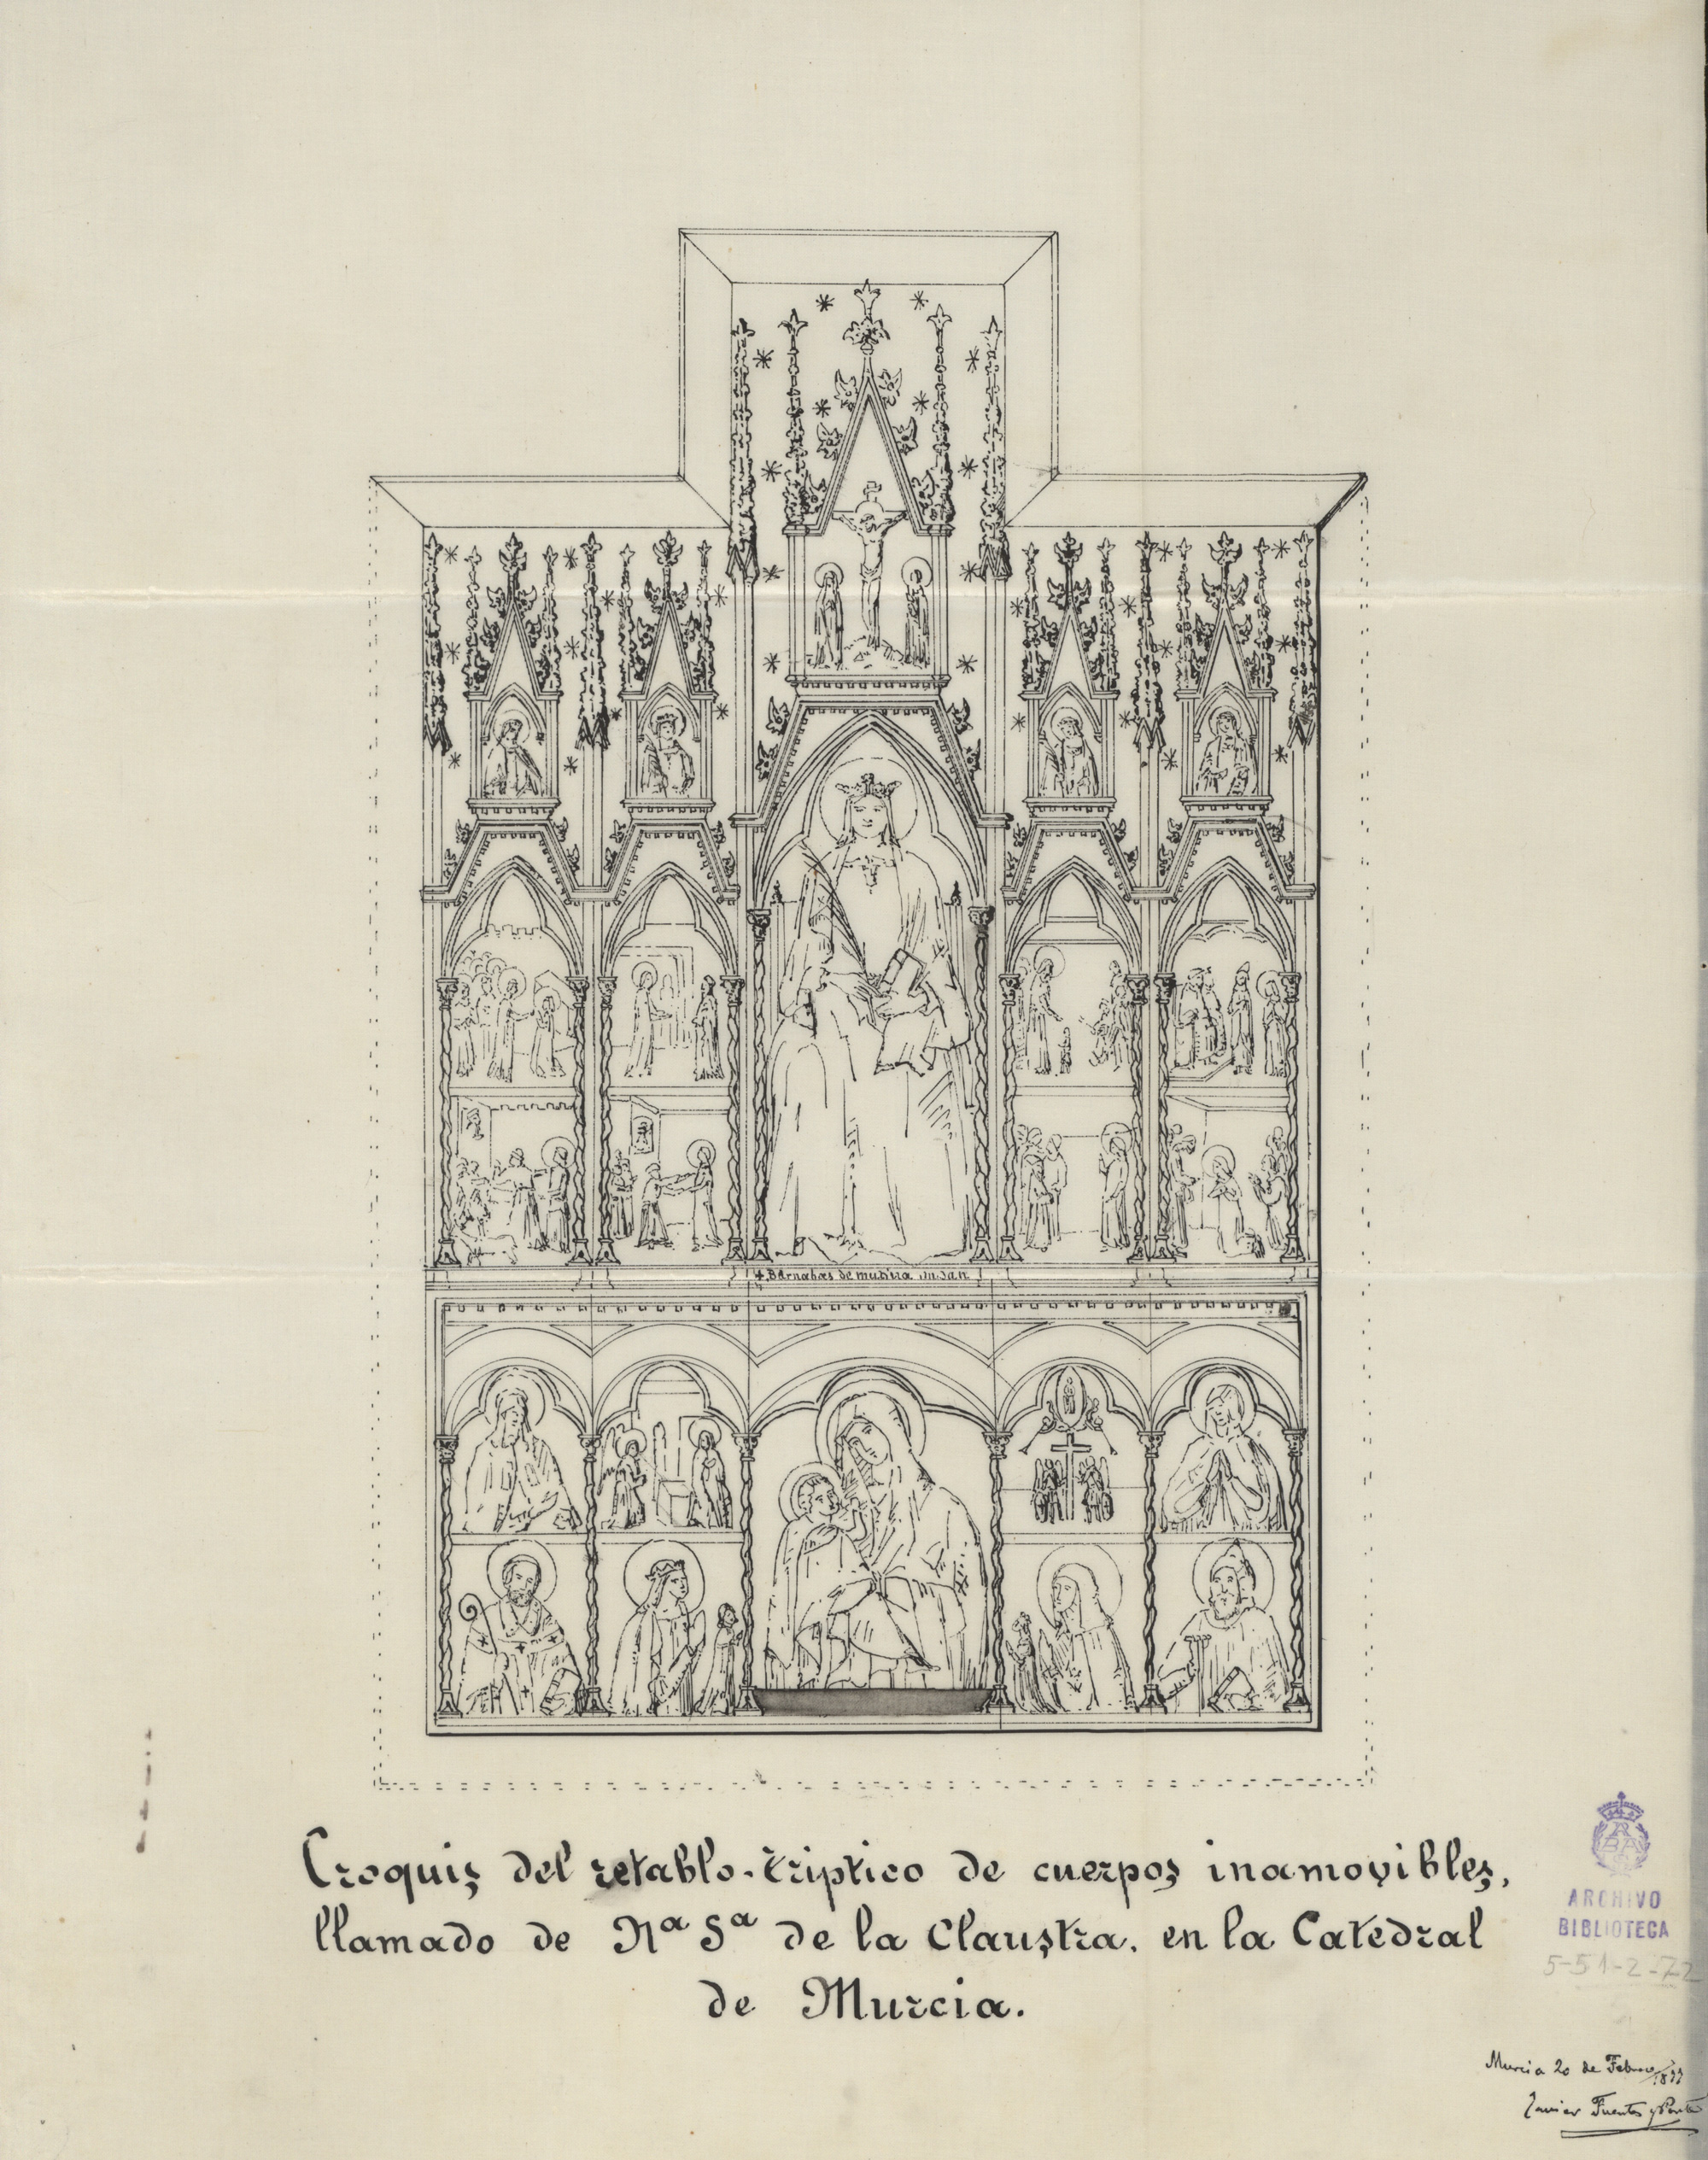 + Barnabas de mutina in Jan
Croquis del retablo-triptico de cuerpos inamovibles,
llamado de Nª Sª de la Claustra, en la Catedral
de Murcia.
ARCHIVO
BIBLIOTECA
5-51-2-72
Murcia 20 de Febrero/1877
Javier Fuentes y Ponte